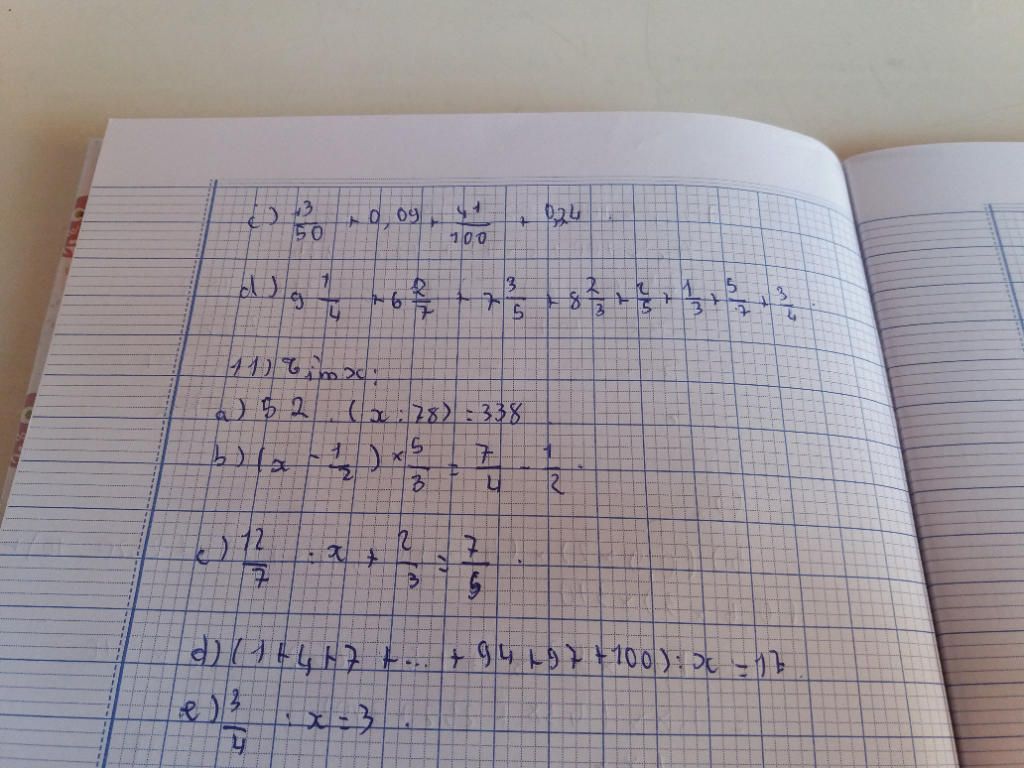 c) 13/50 + 0,09 + 41/100 + 0,24.
d) 9 1/4 + 6 2/7 + 7 3/5 + 8 2/3 + 2/5 + 1/3 + 5/7 + 3/4.
11) Tìm x:
a) 52 . (x : 78) = 338
b) (x - 1/2) × 5/3 = 7/4 - 1/2.
c) 12/7 : x + 2/3 = 7/5.
d) (1 + 4 + 7 + ... + 94 + 97 + 100) : x = 17.
e) 3/4 . x = 3.